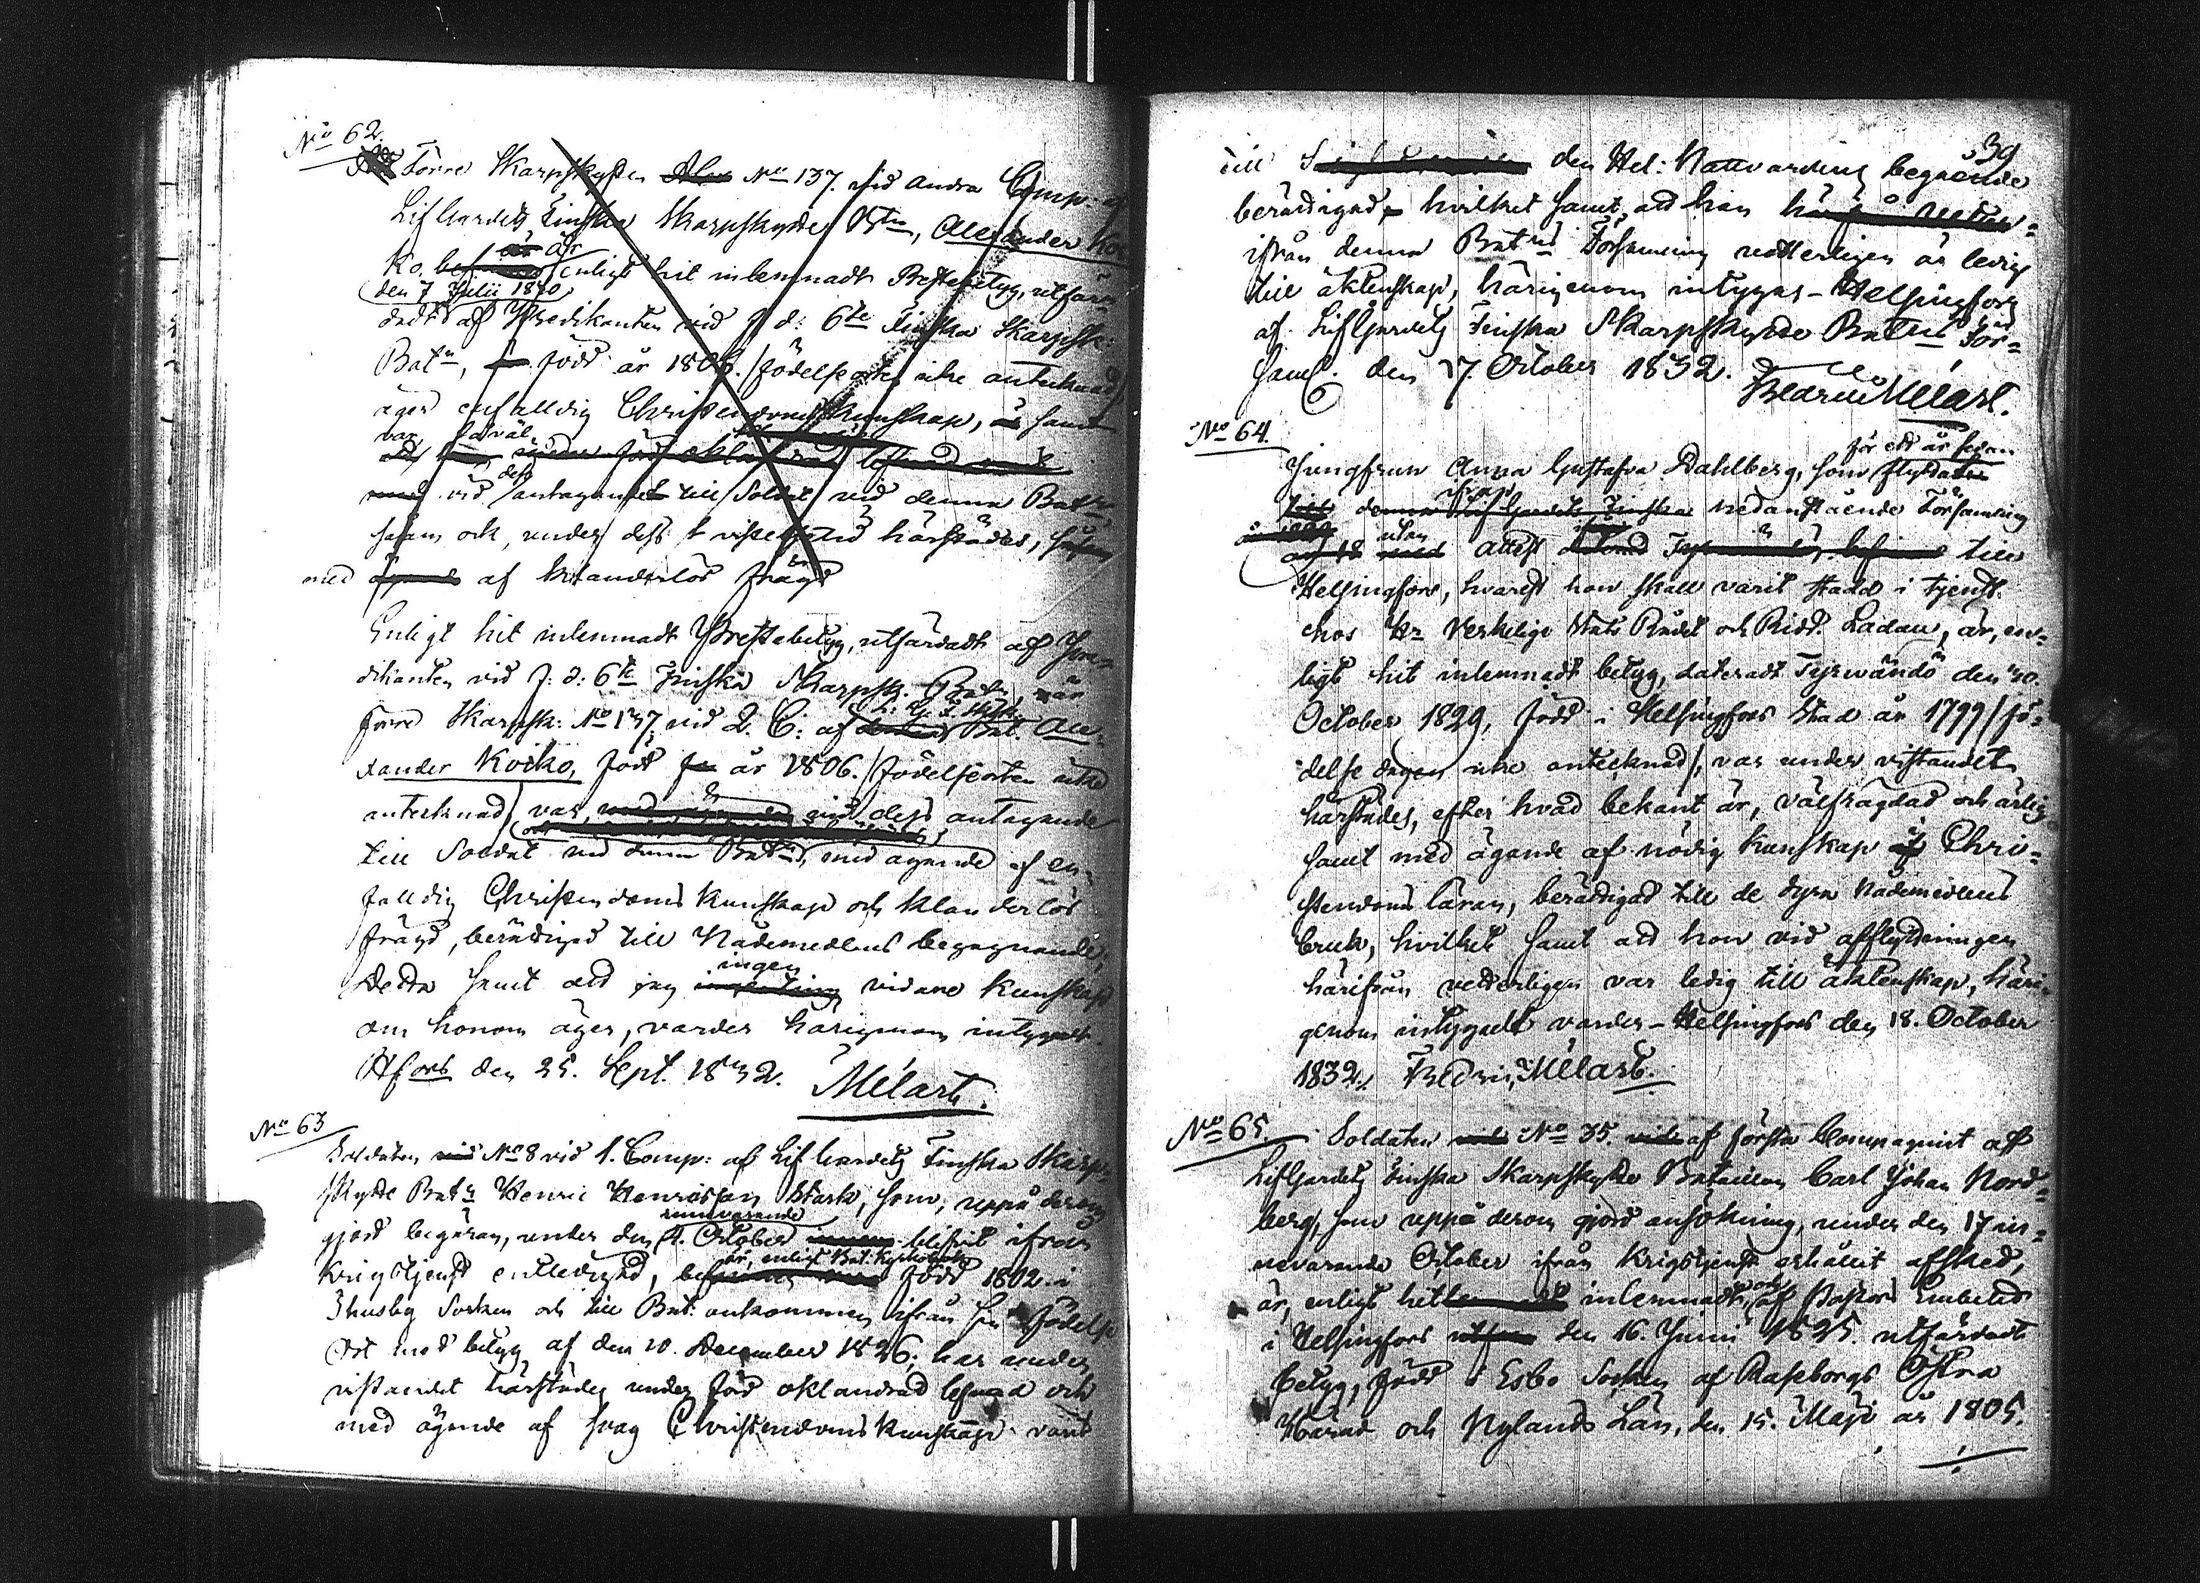 No 62.
Förre Skarpskytten No 137. vid andra Comp. af
LifGardets Finska Skarpskytte Btn, Alexander Koi
ko, är
enligt hit inlemnadt Prestebetyg, utfär-
den 7 Julii 1830
dadt af Predikanten vid f. d. 6te Finska Skarpsk.
Batn, född år 1806. /födelseorten icke antecknad/
äger enfalldig Christendomskunskap, samt
var såväl
vid dess antagande till Soldat vid denna Batn
såsom ock, under dess vistelsetid härstädes,
med af klanderlös frägd
Enligt hit inlemnadt Prestabetyg, utfärdadt af Pre-
dikanten vid f: d: 6te Finska Skarpsk. Batn, är
L. G. F. Sksk.
förre Skarpsk: No 137, vid 2. C: af Bat. Alex-
ander Koiko, född år 1806. /födelseorten icke
antecknad/ var, vid dess antagande
till Soldat vid denna Batn, med ägande af en-
falldig Christendoms kunskap och klanderlös
frägd, berättigad till Nådemedlens begagnande,
Detta samt att jag ingen vidare kunskap
om honom äger, varder härigenom intygadt.
Hfors den 25. Sept. 1832. Mélart.
No 63
Soldaten No 8 vid 1. Comp: af LifGardets Finska Skarp-
skytte Batn Henric Henriksson Stark, som, uppå derom
gjord begäran, under den 4. October innevarande blifvit ifrån
Krigstjenst entledigad, är, enligt Bat. Kyrkobok född 1802 i
Thusby Socken och till Bat: ankommen ifrån sin födelse
Ort med betyg af den 20. December 1826; har under
vistandet härstädes under förd oklandrad lefnad och
med ägande af svag Christendoms kunskap varit
39
till den Hel: Nattvardens begående
berättigad, hvilket samt, att han
ifrån denna Batns Församling vetterligen är ledig
till äktenskap, härigenom intygas – Helsingfors
af LifGardets Finska Skarpskytte Batns För-
saml. den 17. October 1832.
Fredric Mélart.
No 64.
Jungfrun Anna Gustafva Dahlberg, som för ett år sedan flyttade
ifrån nedanstående Församling
utan attest till
Helsingfors, hvarest hon skall varit stadd i tjenst
hos Hr Verkelige Stats Rådet och Ridd. Ladau, är, en-
ligt hit inlemnadt betyg, dateradt Tyrwändö den 30.
October 1829, född i Helsingfors Stad år 1799 /fö-
delse dagen icke antecknad/, var under vistandet
härstädes, efter hvad bekant är, välfrägdad och ärlig
samt med ägande af nödig kunskap i Chri-
stendoms läran, berättigad till de dyra Nådemedlens
bruk, hvilket samt att hon vid afflyttningen
härifrån vetterligen var ledig till äktenskap, häri-
genom intygadt varder – Helsingfors den 18. October
1832. Fredric Mélart.
No 65
Soldaten No 35. af första Compagniet af
LifGardets Finska Skarpskytte Bataillon Carl Johan Nord-
berg, som uppå derom gjord ansökning, under den 17 in-
nevarande October ifrån Krigstjenst erhållit afsked,
är, enligt hit inlemnadt, och af Pastors Embetet
i Helsingfors den 16. Junii 1825. utfärdadt
betyg, född i Esbo Socken af Raseborgs Östra
Härad och Nylands Län, den 15. Maji år 1805.